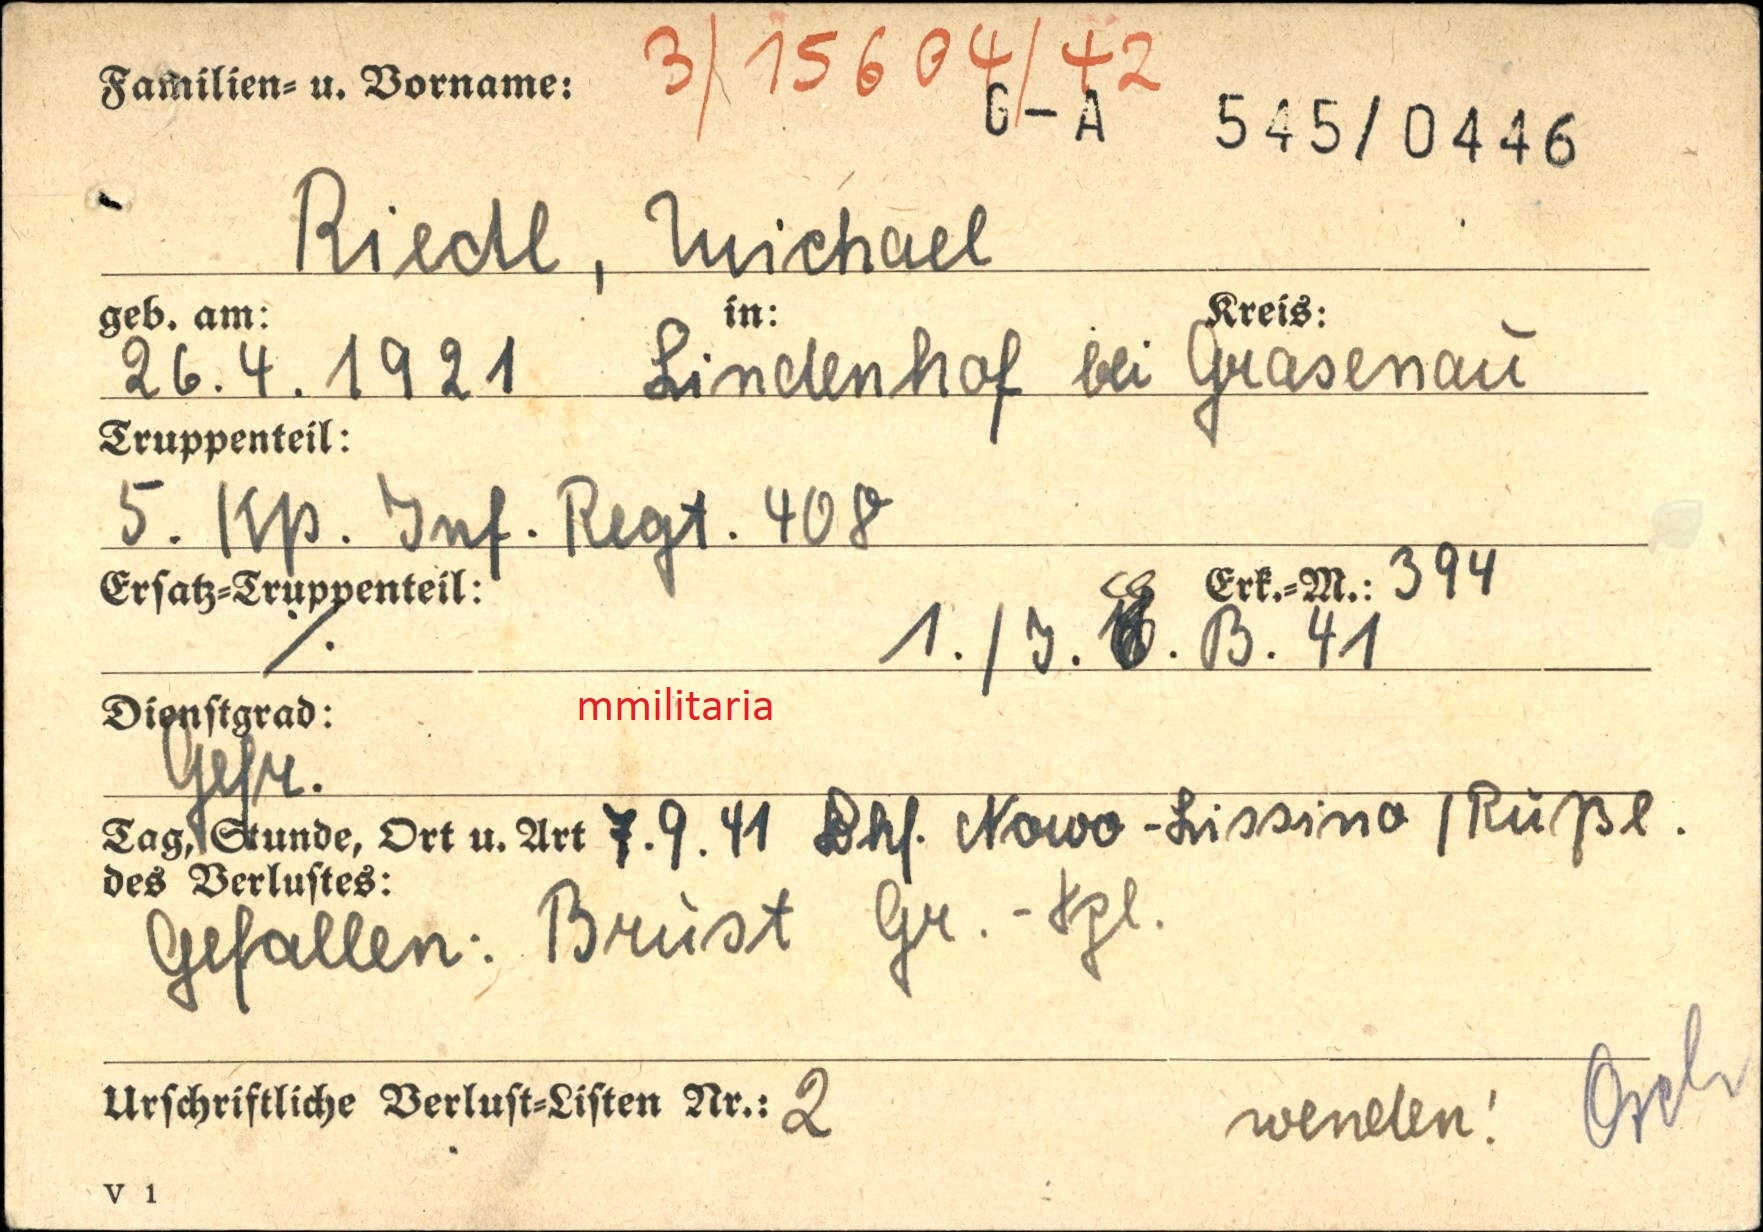 3/15604/42
Familien- u. Vorname:
G-A 545/0446
Riedl, Michael
geb. am: in: Kreis:
26.4.1921 Lindenhof bei Grasenau
Truppenteil:
5. Kp. Inf. Regt. 408
Ersatz-Truppenteil: Erk.-M.: 394
./. 1./J. E. B. 41
Dienstgrad:
mmilitaria
Gefr.
Tag, Stunde, Ort u. Art 7.9.41 Bhf. Nowo-Lissino /Rußl.
des Verlustes:
Gefallen: Brust Gr.-Spl.
Urschriftliche Verlust-Listen Nr.: 2
wenden!
V 1